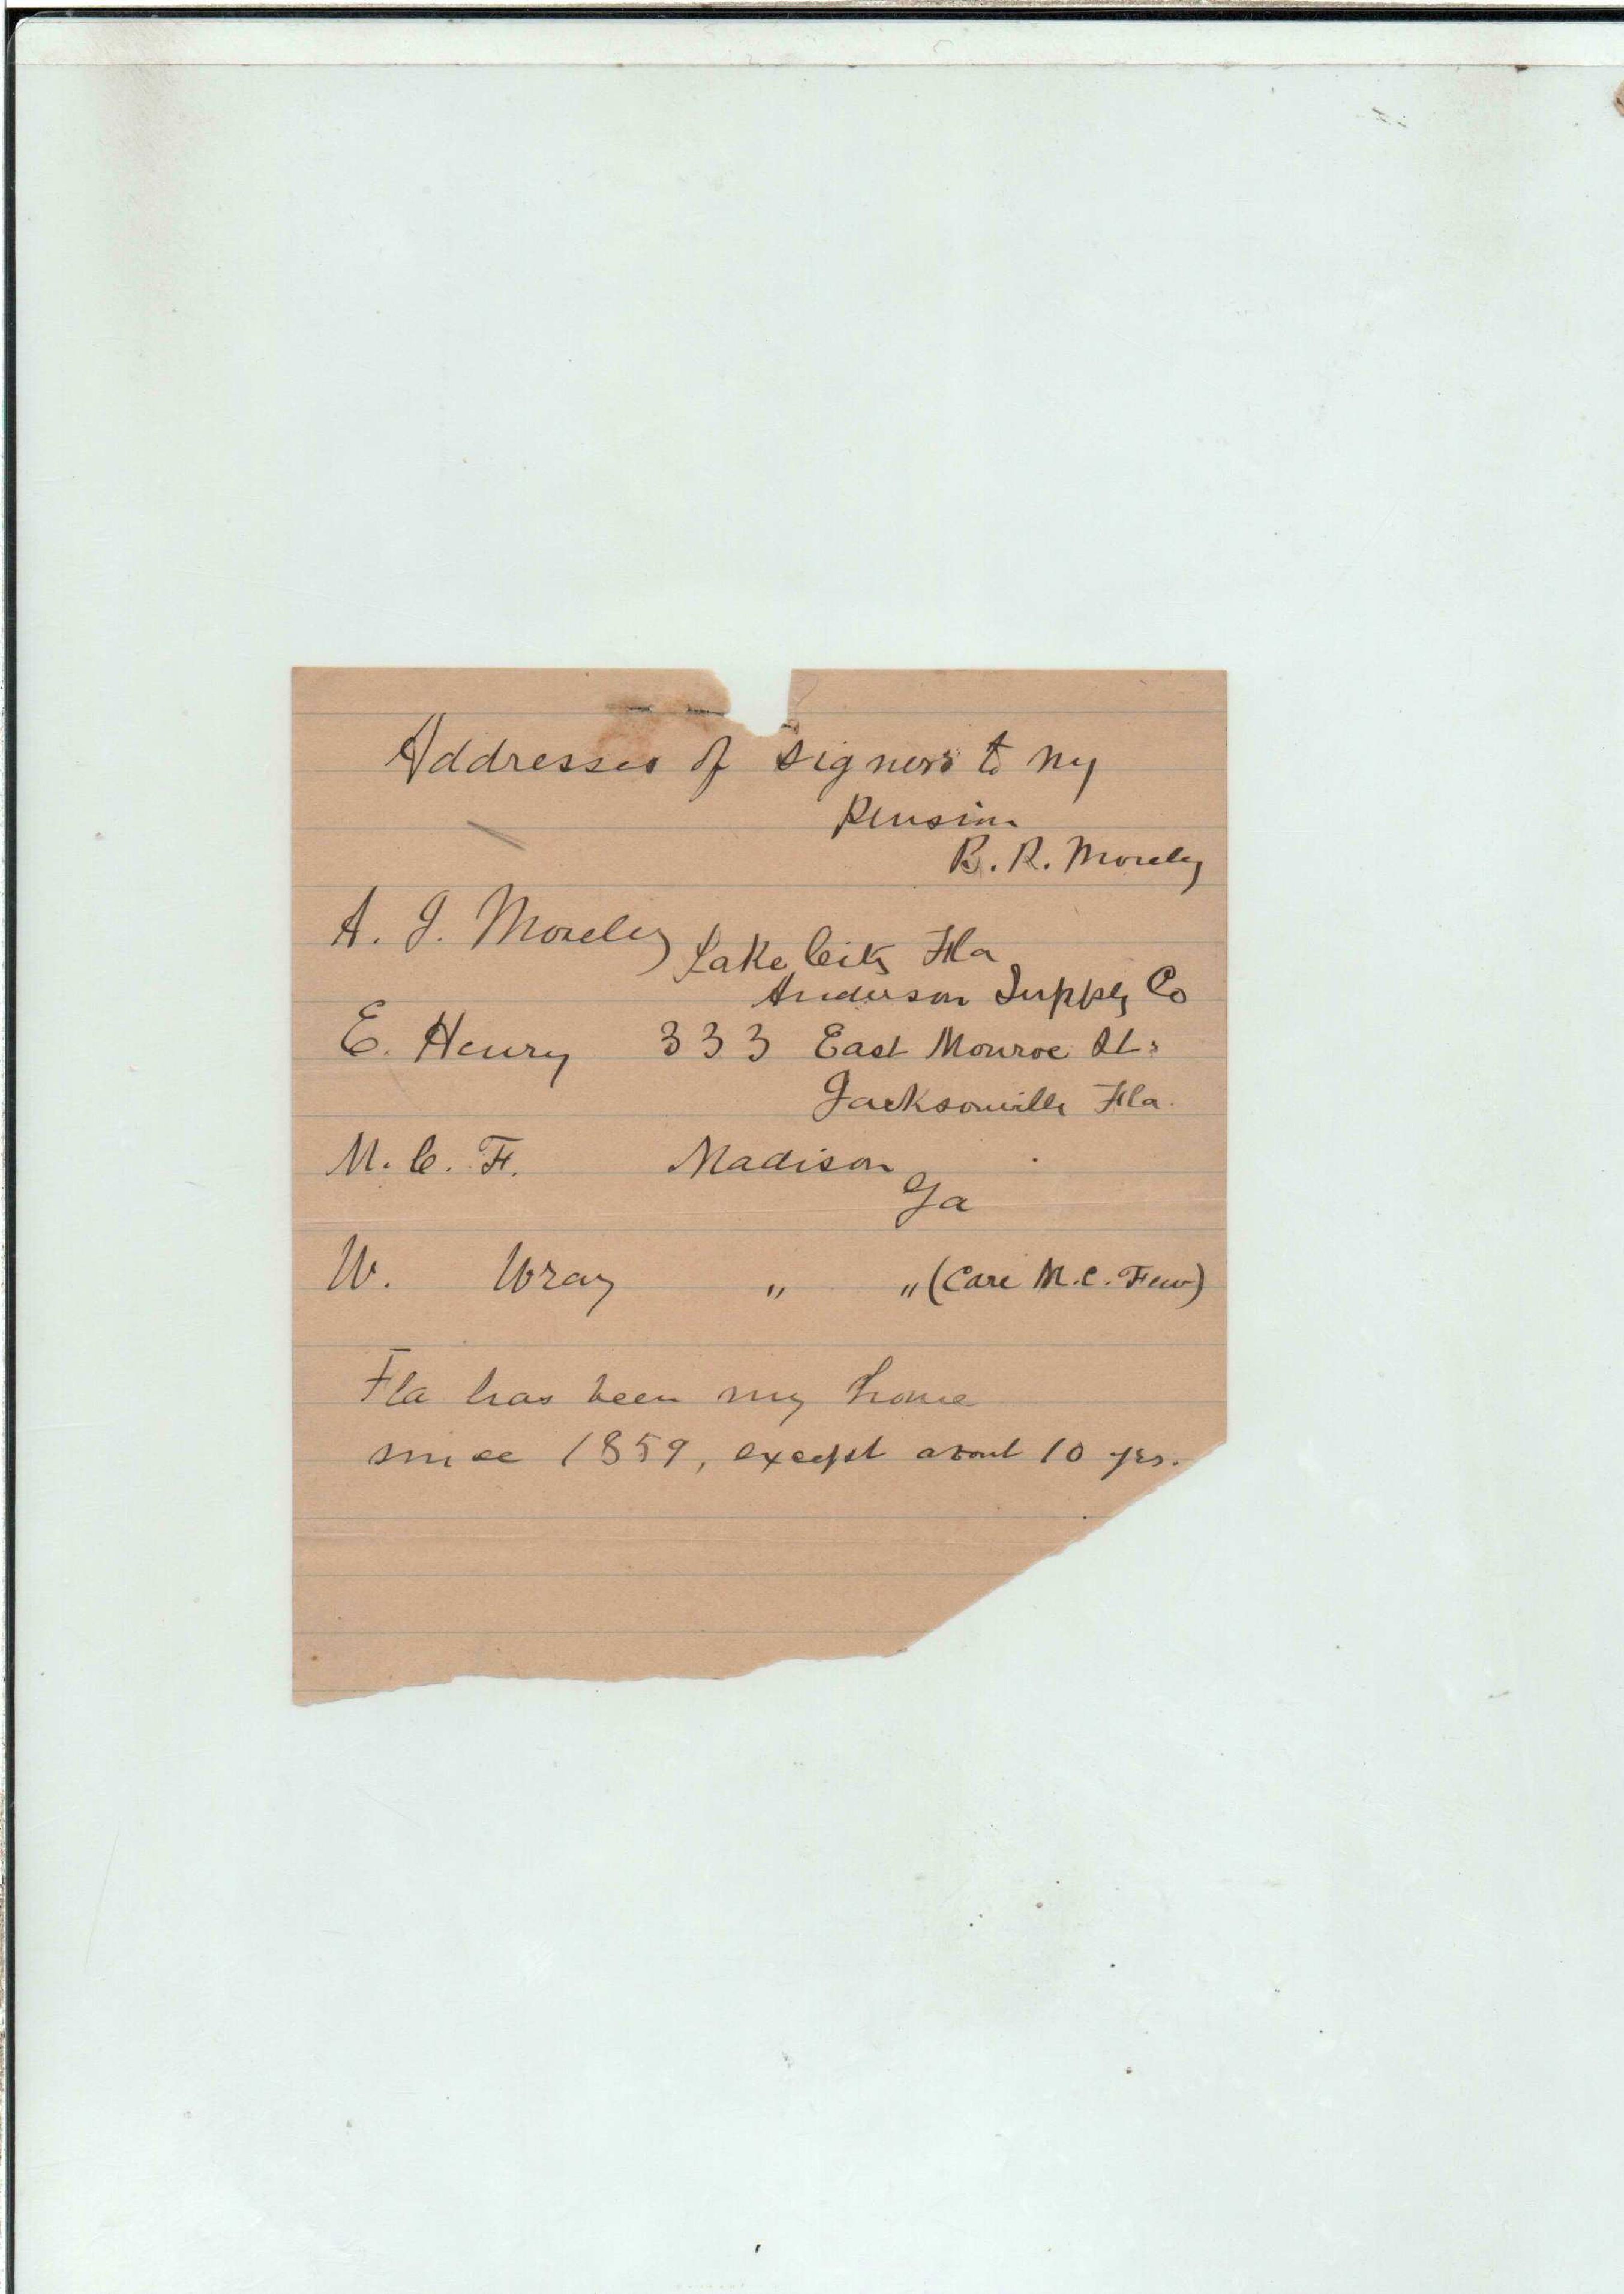 Addresses of signers to my
Pension
R. R. Mosely
A. J. Moseley Lake City Fla
Anderson Supply Co
E. Henry 333 East Monroe St.
Jacksonville Fla.
M. C. F. Madison
Ga
W. Wray " " (Care M.C. Few)
Fla has been my home
since 1859, except about 10 yrs.